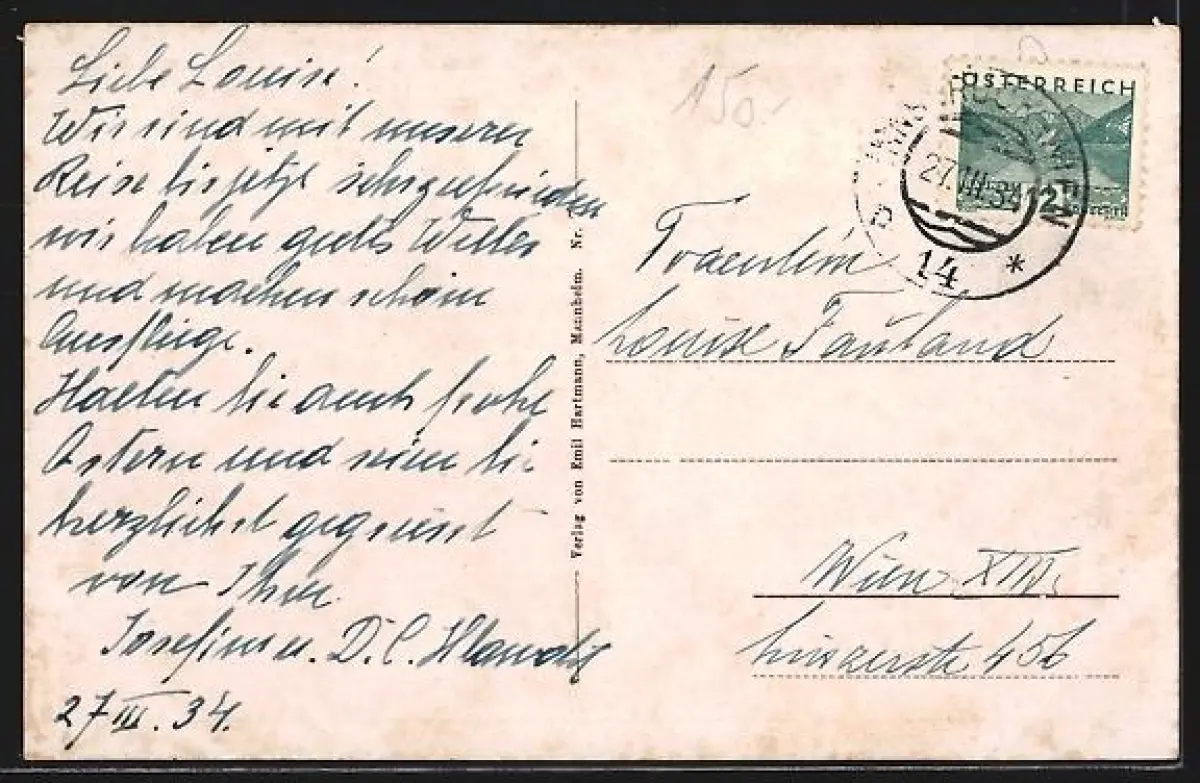 Liebe Louise!
Wir sind mit unserer
Reise bis jetzt sehr zufrieden
wir haben gutes Wetter
und machen schöne
Ausflüge.
Halten Sie auch frohe
Ostern und seien Sie
herzlichst gegrüsst
von Ihrer
Josefine u. D. C.
27 III. 34.
Verlag von Emil Hartmann, Mannheim. Nr.
A50.-
ÖSTERREICH
12
27.III.
14 *
Fraeulein
Louise Fauland
Wien XIII,
Linzerstr 456